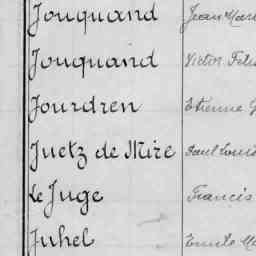 Jouquand Jean Mar
Jouquand Victor Féli
Jourdren Etienne G
Juetz de Mire Paul Louis
Le Juge Francis
Juhel Emile Ma